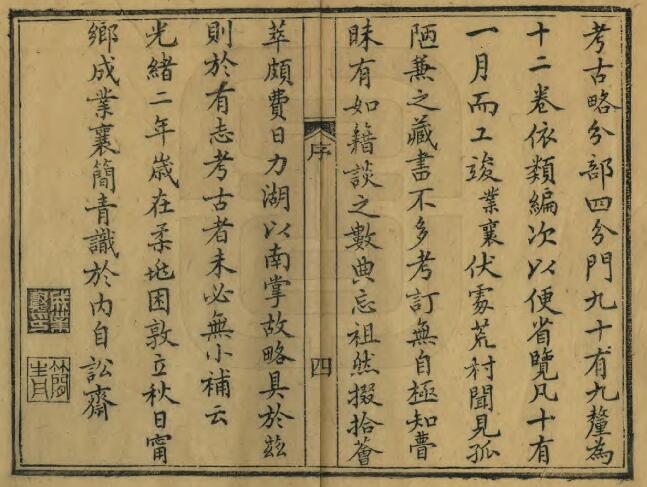 考古略分部四分門九十有九釐為
十二卷依類編次以便省覽凡十有
一月而工竣業襄伏處荒村聞見孤
陋蕪之藏書不多考訂無自極知瞢
昧有如籍談之數典忘祖然掇拾薈
序
四
萃頗費日力湖以南掌故略具於茲
則於有志考古者未必無小補云
光緒二年歲在柔兆困敦立秋日甯
鄉成業襄簡青識於內自訟齋
成業襄印